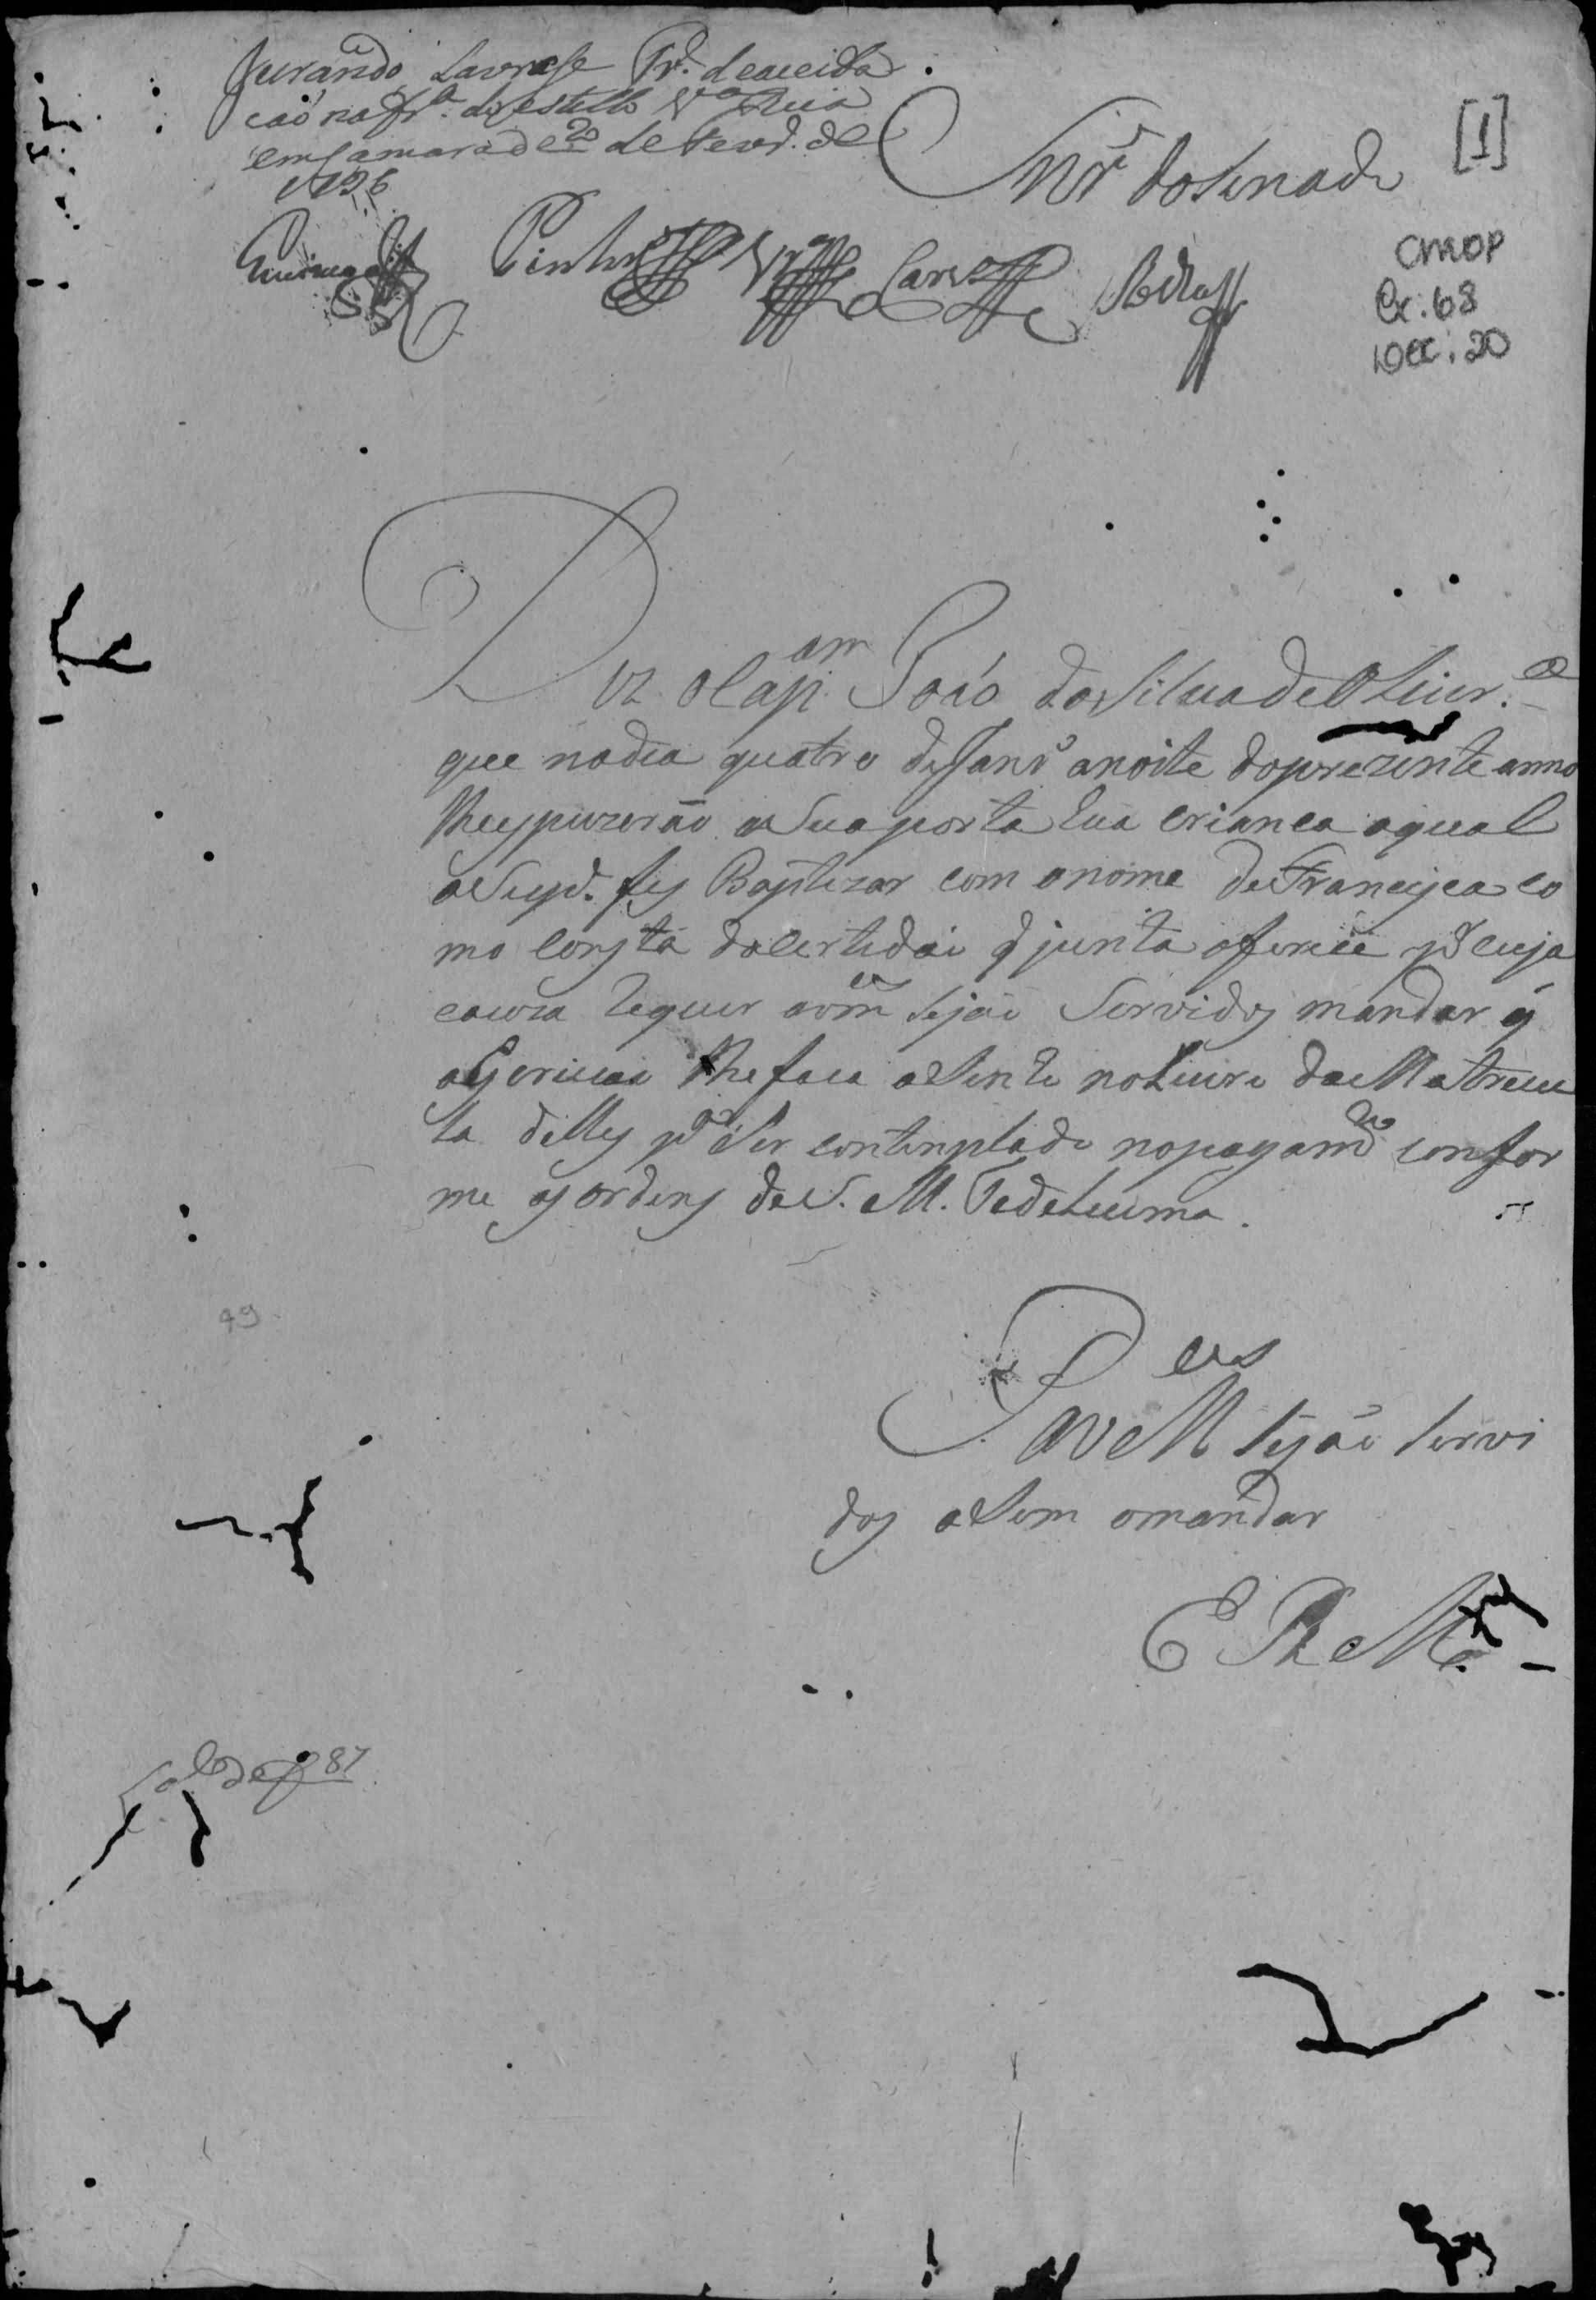 Jurando Lavrese
cão na fr.ª do estillo V.ª Rica
em Camara de 20 de Fevr.º de
Snr.ᵉˢ do Senado
[1]
CMOP
Cx. 68
Doc. 20
Pinto
Diz o Cap.ᵃᵐ João da Silva de Oliur.ª
que no dia quatro de Janr.º a noite do prezente anno
lhe espuzerão a Sua porta hũa crianca a qual
o Sup.ᵉ fes Baptizar com o nome de Francisca co
mo consta da certidão q̃ junta oferece p.ʳ cuja
cauza Requer a vm.ᶜᵉˢ sejão Servidos mandar q̃
o Escrivão lhe faca aSento no Livro da Matricu
la delles p.ª Ser contemplado no pagam.ᵗᵒ confor
me as ordens de S. M. Fedelicima.
P. a V M.ᶜᵉˢ sejão Servi
dos aSim o mandar
E R M.ᶜᵉ
49
87